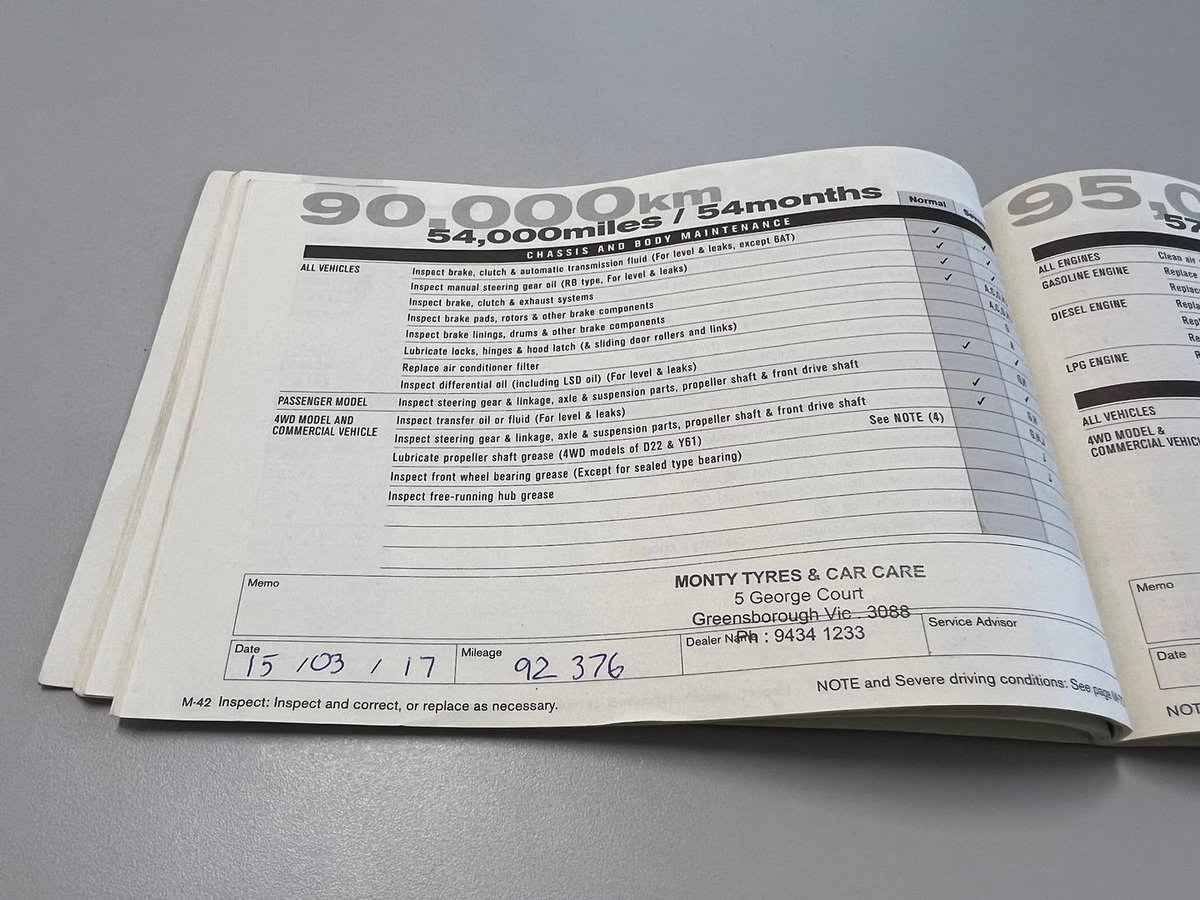 90,000km
54,000miles / 54months
Normal
CHASSIS AND BODY MAINTENANCE
ALL VEHICLES
Inspect brake, clutch & automatic transmission fluid (For level & leaks, except 6AT)
Inspect manual steering gear oil (RB type, For level & leaks)
Inspect brake, clutch & exhaust systems
Inspect brake pads, rotors & other brake components
Inspect brake linings, drums & other brake components
Lubricate locks, hinges & hood latch (& sliding door rollers and links)
Replace air conditioner filter
Inspect differential oil (including LSD oil) (For level & leaks)
PASSENGER MODEL
Inspect steering gear & linkage, axle & suspension parts, propeller shaft & front drive shaft
4WD MODEL AND
COMMERCIAL VEHICLE
Inspect transfer oil or fluid (For level & leaks)
Inspect steering gear & linkage, axle & suspension parts, propeller shaft & front drive shaft
Lubricate propeller shaft grease (4WD models of D22 & Y61) See NOTE (4)
Inspect front wheel bearing grease (Except for sealed type bearing)
Inspect free-running hub grease
Memo
MONTY TYRES & CAR CARE
5 George Court
Greensborough Vic . 3088
Ph : 9434 1233
Date
15 / 03 / 17
Mileage
92 376
Dealer Name
Service Advisor
M-42 Inspect: Inspect and correct, or replace as necessary.
NOTE and Severe driving conditions: See page
95,0
57
ALL ENGINES
Clean air
GASOLINE ENGINE
Replace
Replac
DIESEL ENGINE
Repla
Rep
Re
LPG ENGINE
ALL VEHICLES
4WD MODEL &
COMMERCIAL VEHIC
Memo
Date
NOT